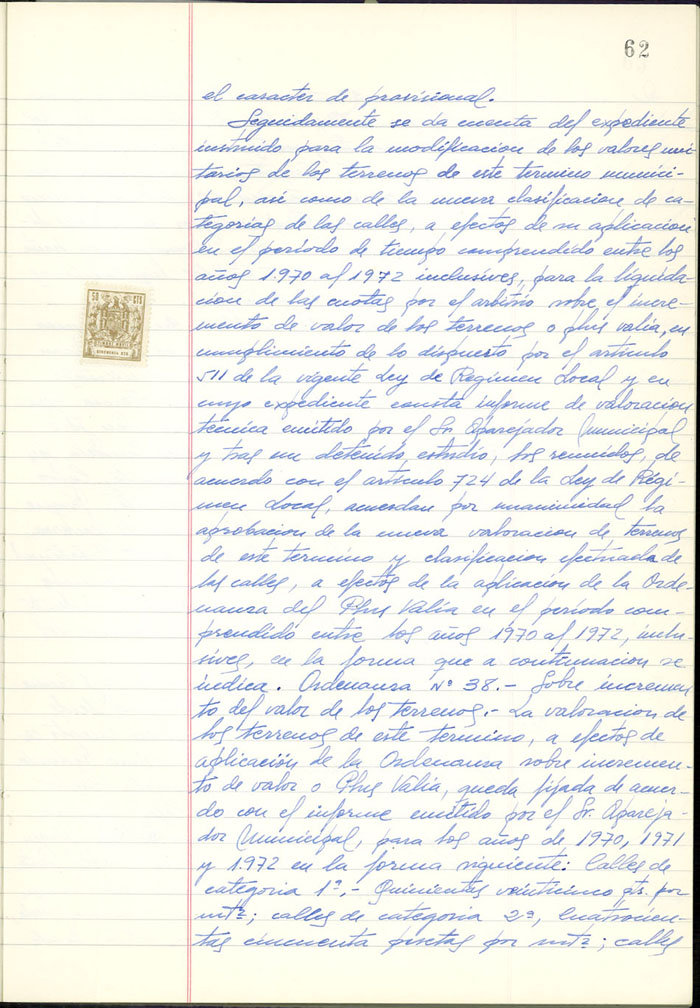 62
el caracter de provisional.
Seguidamente se da cuenta del expediente
instruido para la modificacion de los valores uni-
tarios de los terrenos de este termino munici-
pal, así como de la nueva clasificacion de ca-
tegorias de las calles, a efectos de su aplicacion
en el período de tiempo comprendido entre los
años 1.970 al 1972 inclusives, para la liquida-
cion de las cuotas por el arbitrio sobre el incre-
mento de valor de los terrenos o plus valía, en
cumplimiento de lo dispuesto por el articulo
511 de la vigente Ley de Regimen Local y en
cuyo expediente consta informe de valoracion
técnica emitido por el Sr. Aparejador Municipal
y tras un detenido estudio, los reunidos, de
acuerdo con el articulo 724 de la Ley de Régi-
men Local, acuerdan por unanimidad la
aprobacion de la nueva valoracion de terrenos
de este termino y clasificacion efectuada de
las calles, a efectos de la aplicacion de la Orde-
nanza del Plus Valia en el período com-
prendido entre los años 1970 al 1972, inclu-
sives, en la forma que a continuacion se
indica. Ordenanza Nº 38.- Sobre incremen
to del valor de los terrenos.- La valoracion de
los terrenos de este termino, a efectos de
aplicación de la Ordenanza sobre incremen-
to de valor o Plus Valia, queda fijada de acuer-
do con el informe emitido por el Sr. Apareja-
dor Municipal, para los años de 1970, 1971
y 1.972 en la forma siguiente: Calles de
categoria 1ª.- Quinientas veinticinco pts. por
mt²; calles de categoria 2ª, Cuatrocien-
tas cincuenta pesetas por mt²; calles
50 CTS
CINCUENTA CTS